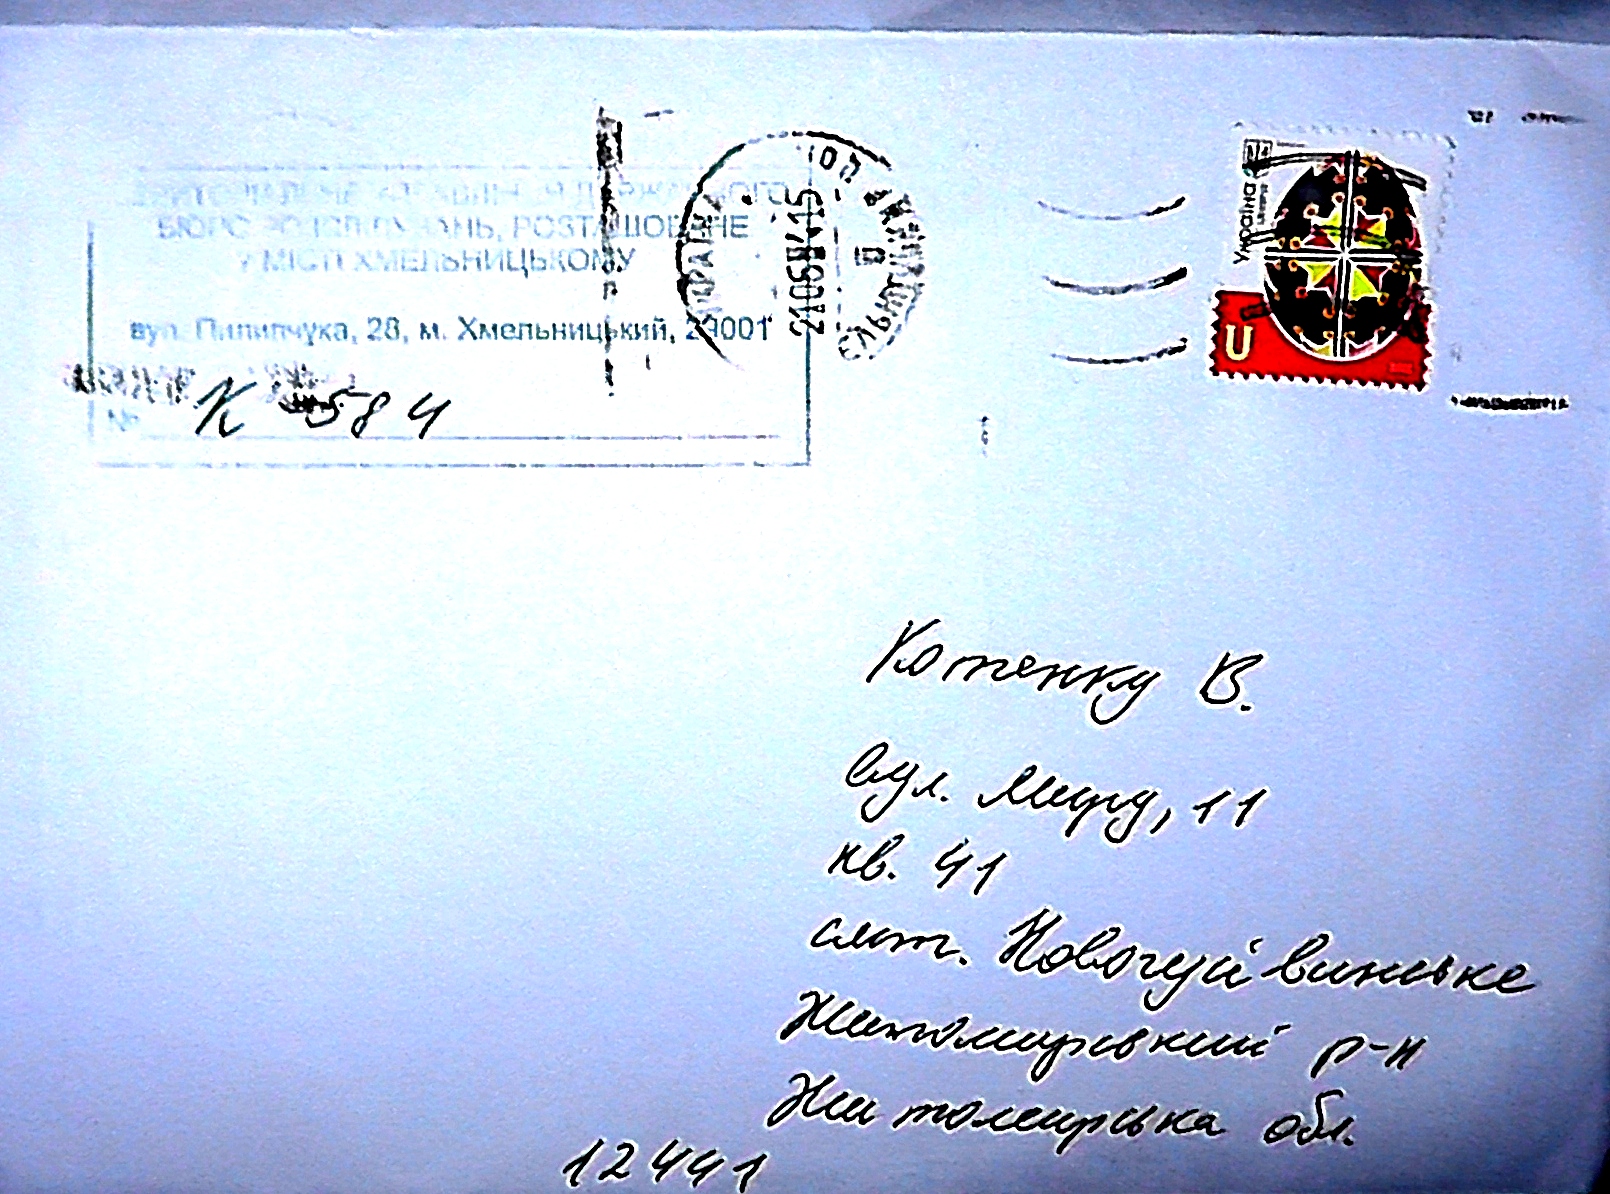 ТЕРИТОРІАЛЬНЕ УПРАВЛІННЯ ДЕРЖАВНОГО
БЮРО РОЗСЛІДУВАНЬ, РОЗТАШОВАНЕ
У МІСТІ ХМЕЛЬНИЦЬКОМУ
вул. Пилипчука, 28, м. Хмельницький, 29001
№ К 584
УКРАЇНА
210624 15
Україна
U
Котенку В.
вул. Миру, 11
кв. 41
смт. Новогуйвинське
Житомирський р-н
Житомирська обл.
12441